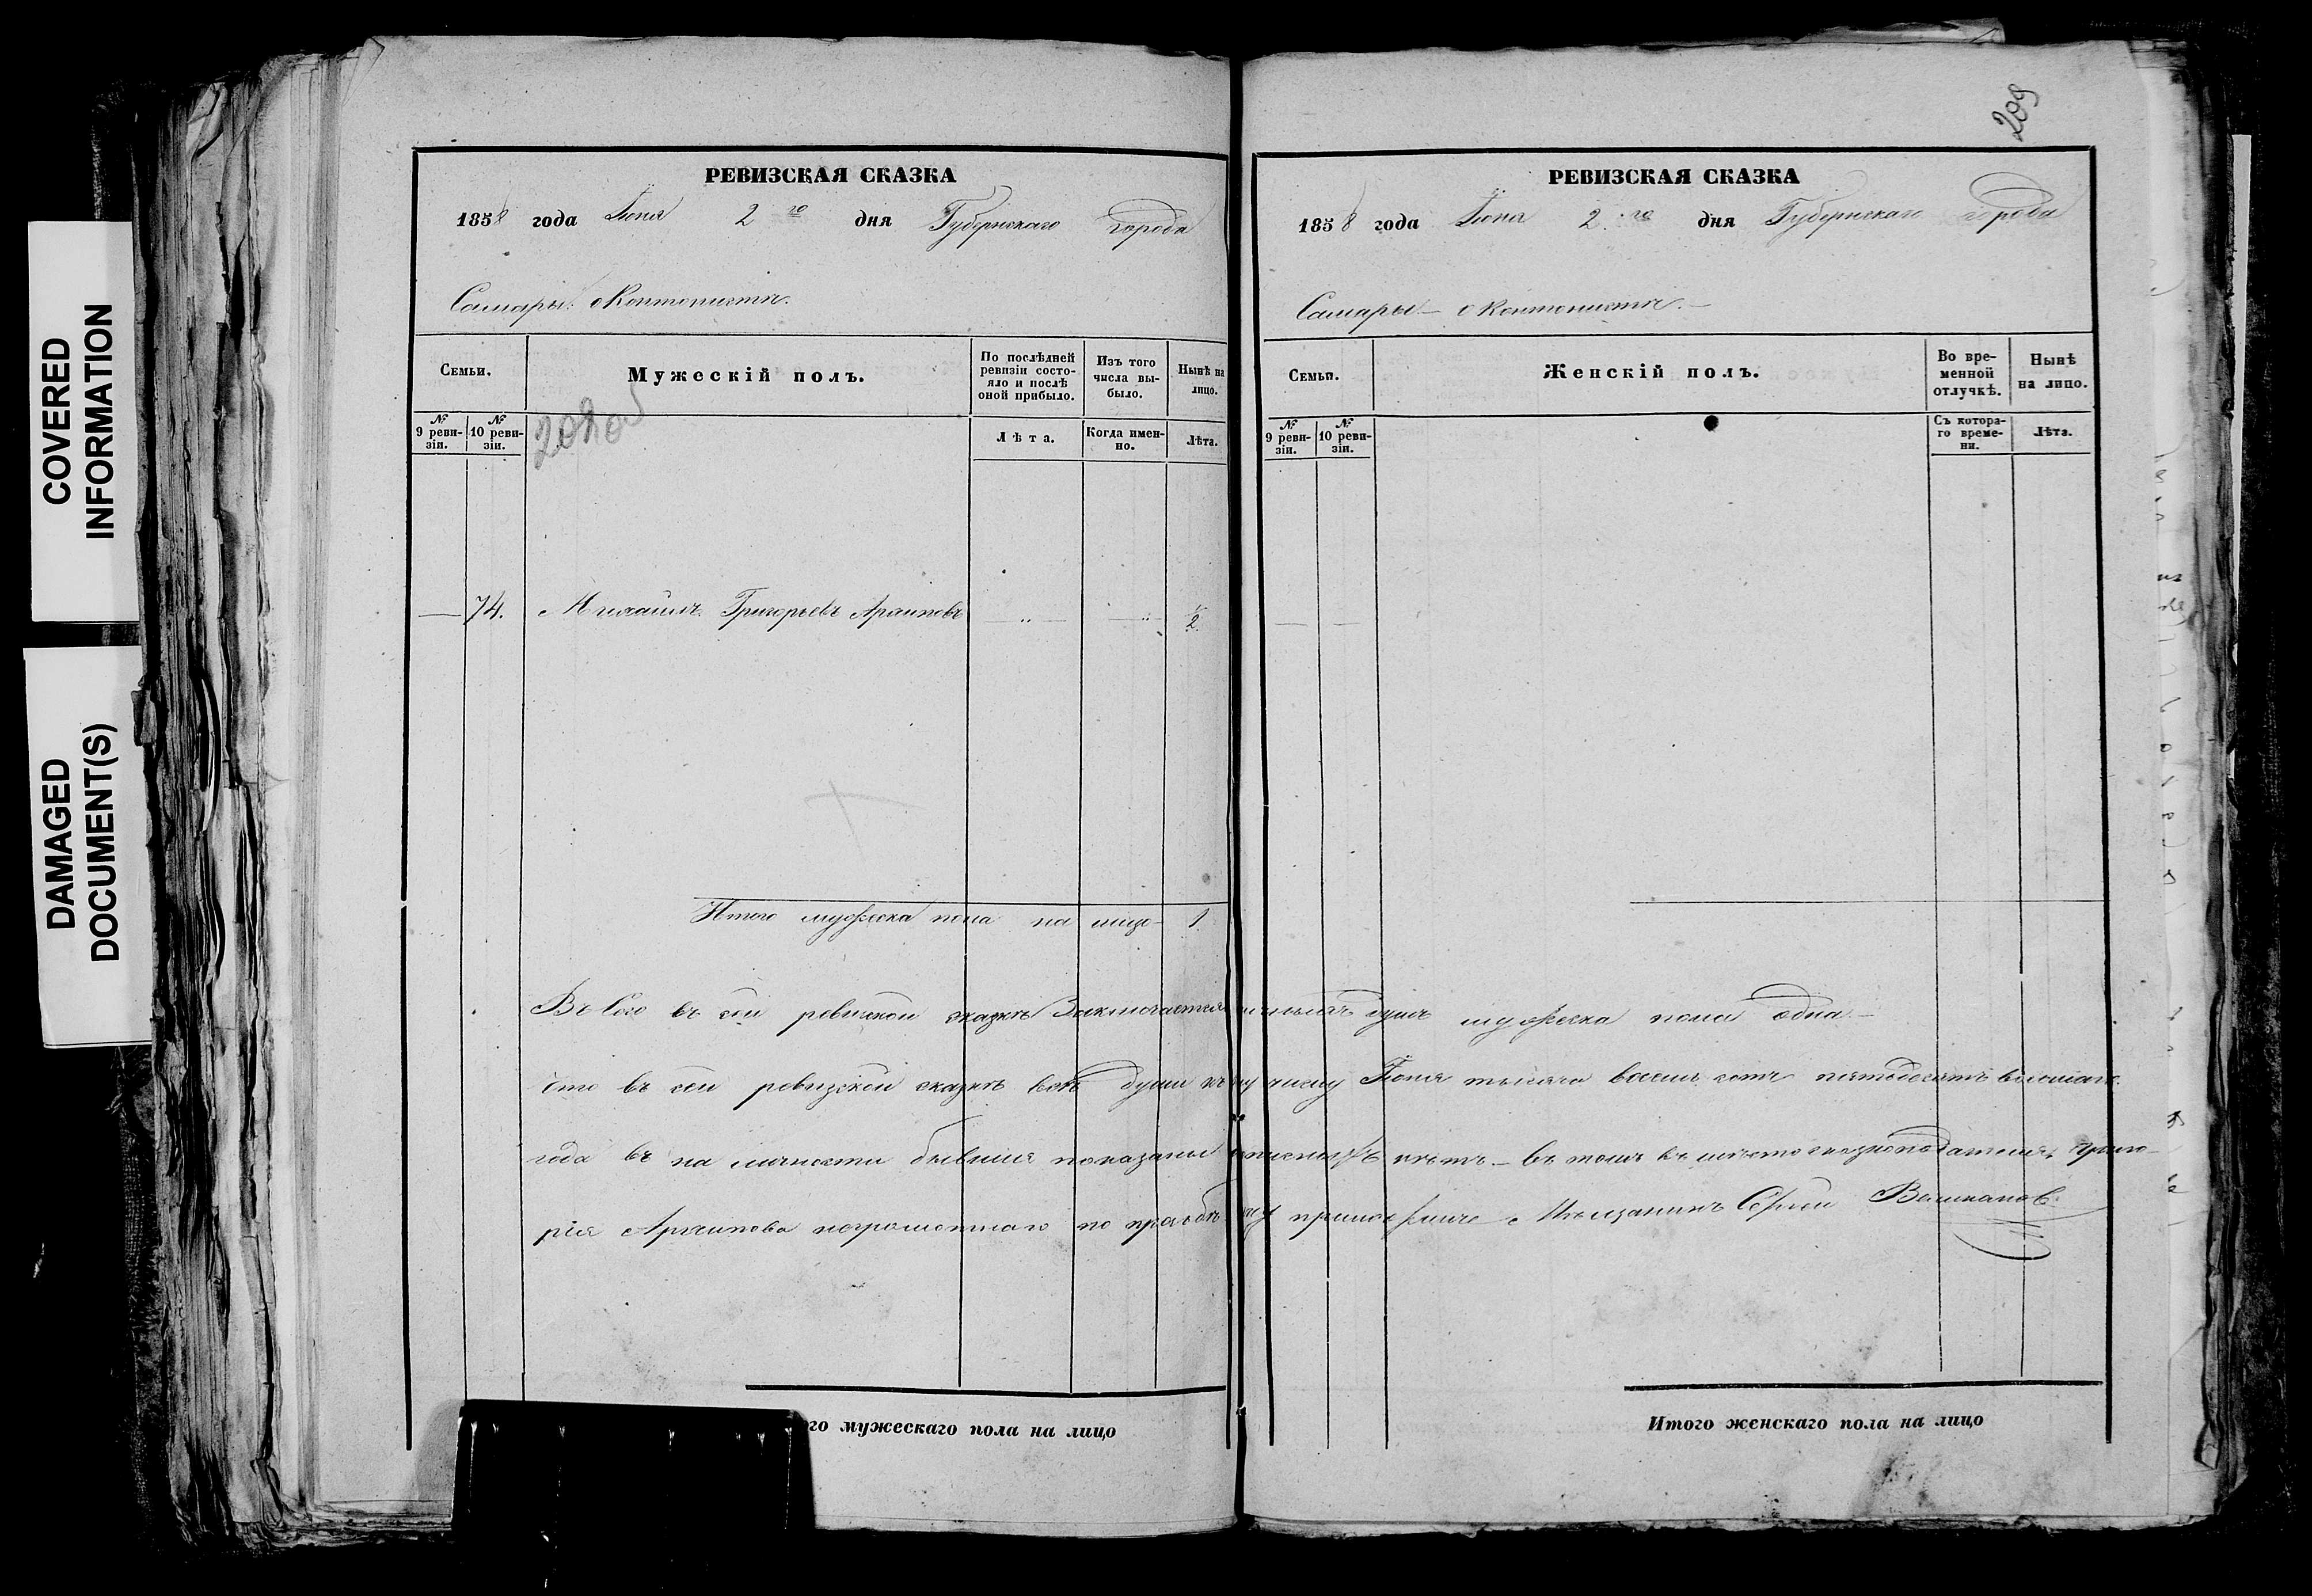 COVERED
INFORMATION
DAMAGED
DOCUMENT(S)
РЕВИЗСКАЯ СКАЗКА
1858 года Іюня 2го дня Губернскаго города
Самары
Семьи.
Мужескій полъ.
По послѣдней ревизіи состояло и послѣ оной прибыло.
Изъ того числа выбыло.
Нынѣ на лицо.
№ 9 ревизіи.
№ 10 ревизіи.
Лѣта.
Когда именно.
Лѣта.
74. Михаилъ Григорьевъ Архиповъ
Итого мужеска пола на лицо 1
го мужескаго пола на лицо
209
РЕВИЗСКАЯ СКАЗКА
1858 года Іюня 2.го дня Губернскаго города
Самары
Семьи.
Женскій полъ.
Во временной отлучкѣ.
Нынѣ на лицо.
№ 9 ревизіи.
№ 10 ревизіи.
Съ котораго времени.
Лѣта.
въ сей ревизской сказкѣ Заключается душъ мужеска пола одна
что въ сей ревизской сказкѣ всѣ души числу Іюня тысяча восемь сотъ пятьдесятъ восьмаго
года въ на личности бывшія показаны въ томъ въ мѣсто сказкоподателя Григо
рія Архипова неграмотнаго по прозьбѣ Мѣщанинъ Сергѣй
Итого женскаго пола на лицо